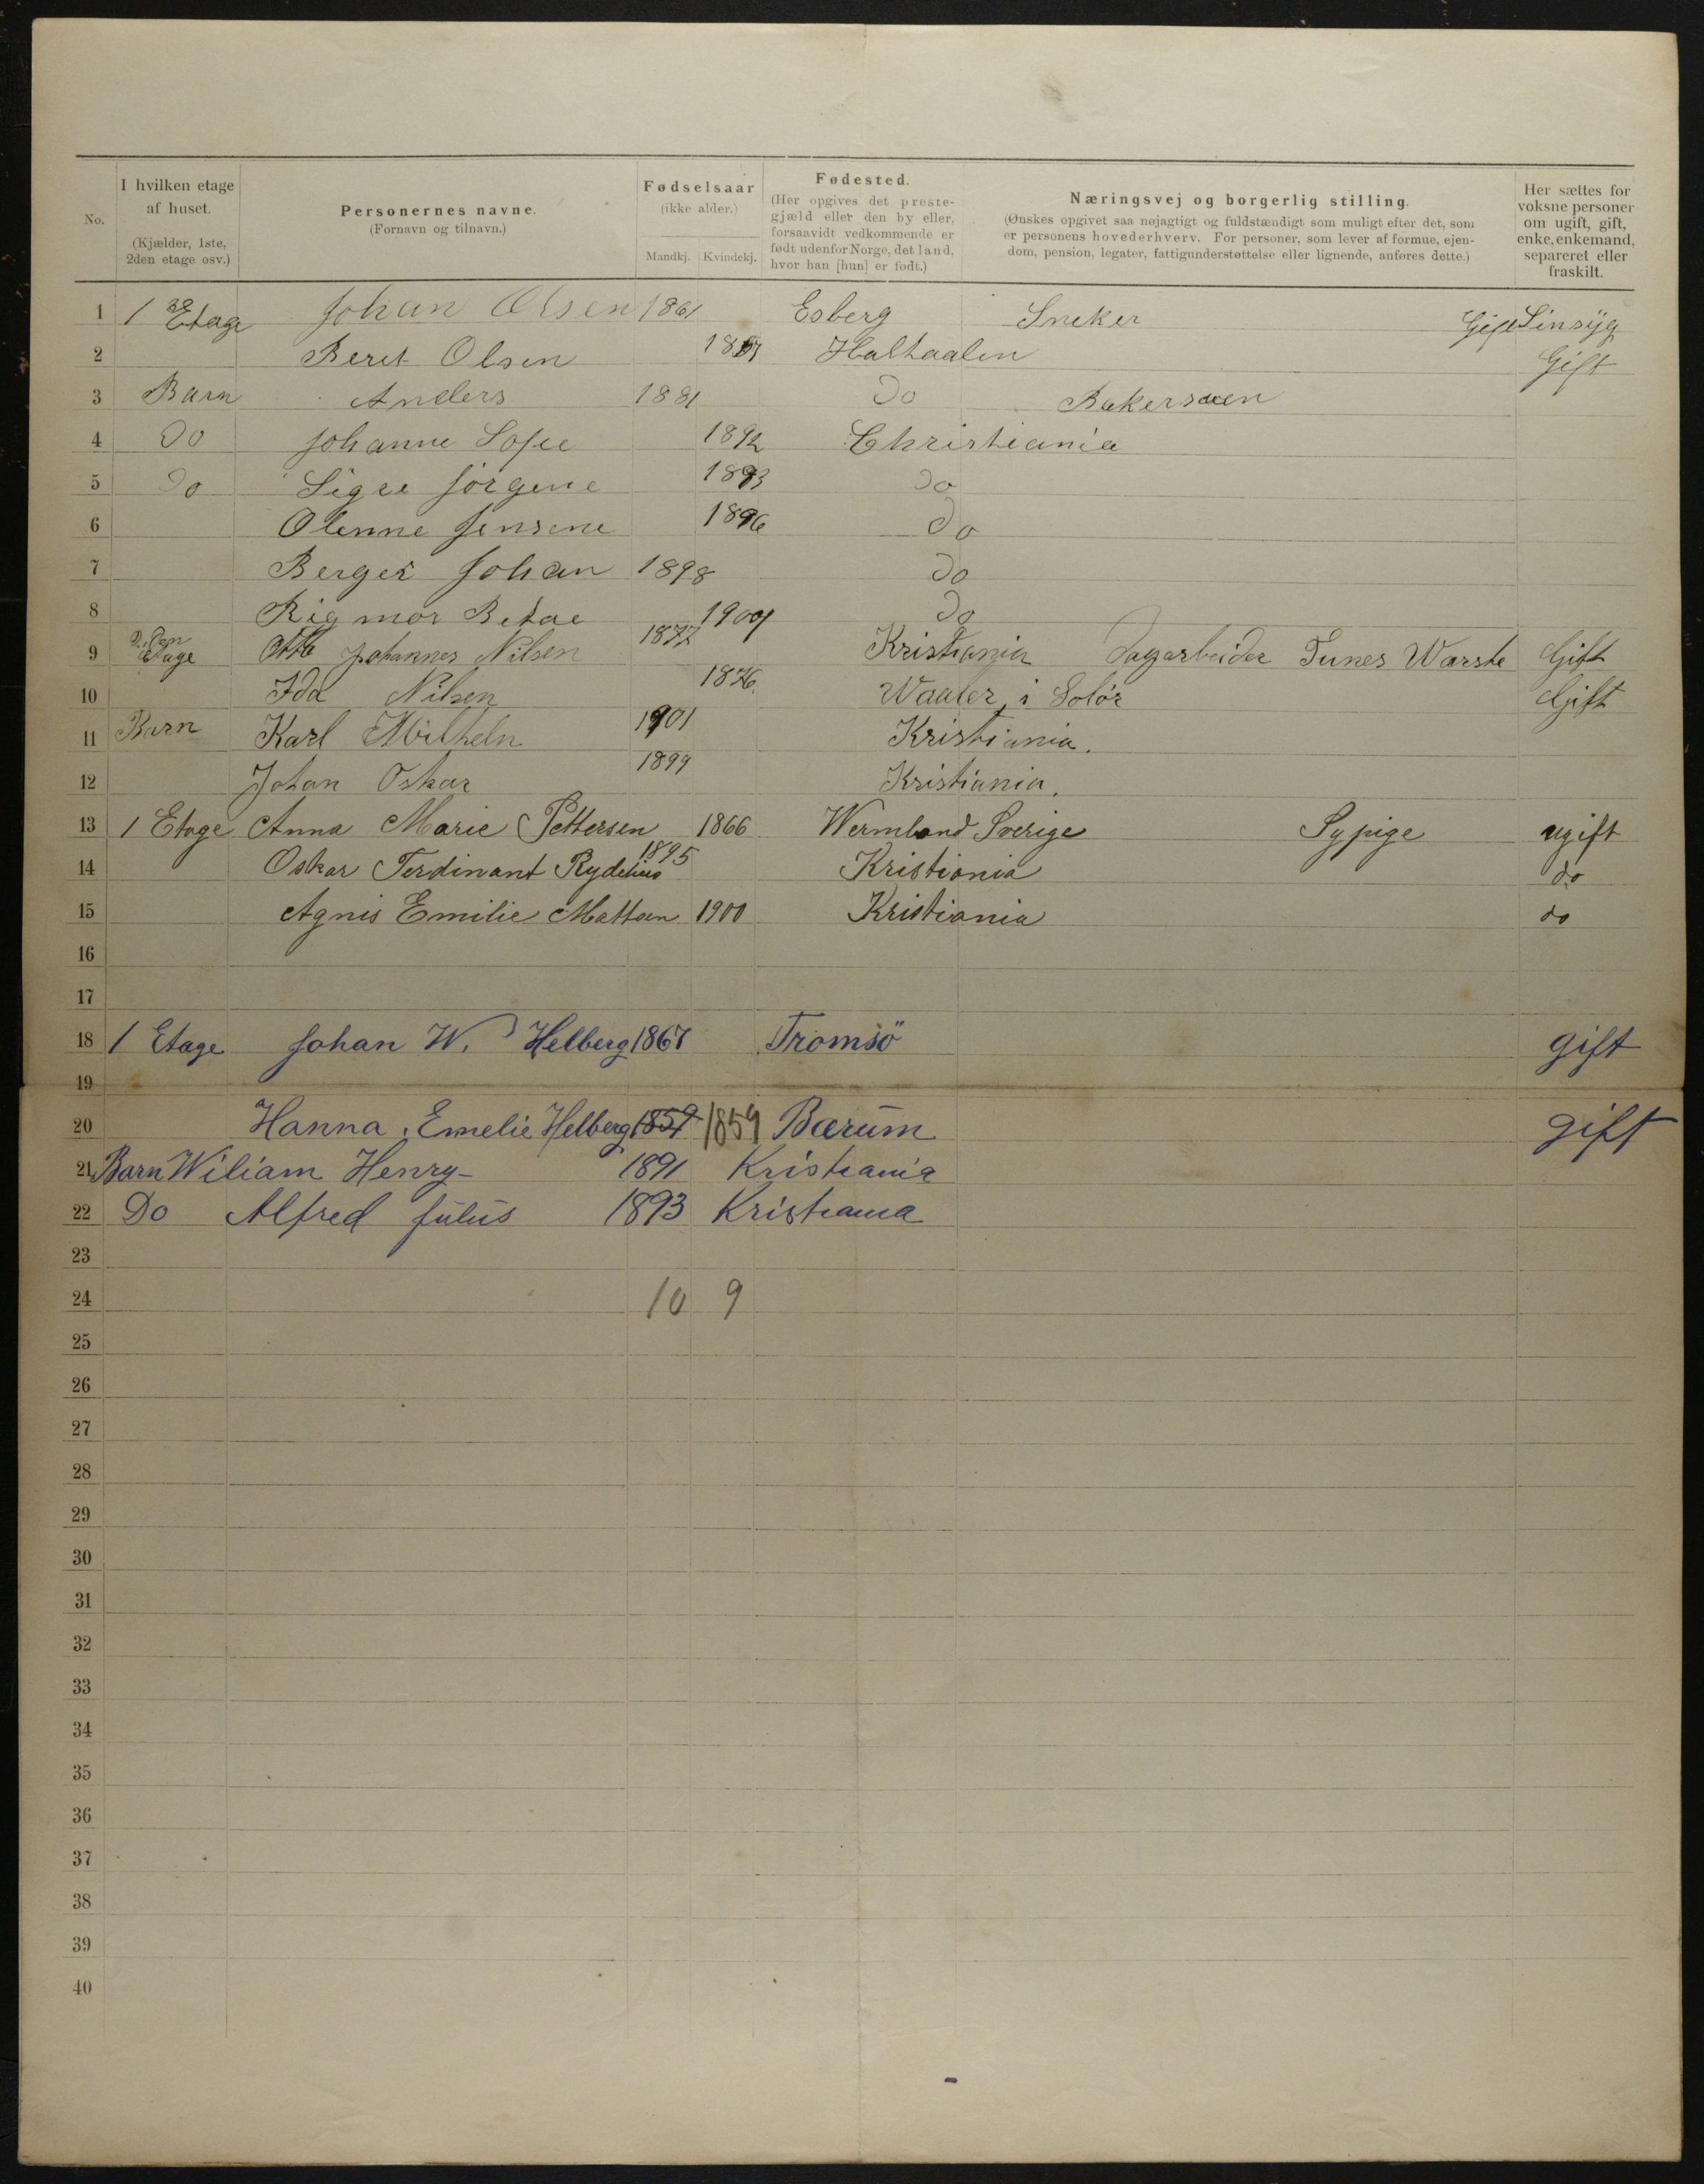 No.
I hvilken etage af huset. (Kjælder, 1ste, 2den etage osv.)
Personernes navne. (Fornavn og tilnavn.)
Fødselsaar (ikke alder.) Mandkj. Kvindekj.
Fødested. (Her opgives det prestegjæld eller den by eller, forsaavidt vedkommende er født udenfor Norge, det land, hvor han [hun] er født.)
Næringsvej og borgerlig stilling. (Ønskes opgivet saa nøjagtigt og fuldstændigt som muligt efter det, som er personens hovederhverv. For personer, som lever af formue, ejendom, pension, legater, fattigunderstøttelse eller lignende, anføres dette.)
Her sættes for voksne personer om ugift, gift, enke, enkemand, separeret eller fraskilt.
1 1 Etage Johan Olsen 1861 Esberg Sneker Gift Sinsÿg
2 Beret Olsen Haltaalen Gift
3 Barn Anders 1881 Do
4 Do Johanne Sofie 1892 Christiania
5 Do Signe Jørgene 1893 Do
6 Olenne Jensene 1896 Do
7 Berger Johan 1898 Do
8 Rigmor 1900 Do
9 2den Etage Otto Johannes Nilsen 1877 Kristiania Dagarbeider Gift
10 Ida Nilsen 1876 Waaler i Solør Gift
11 Barn Karl Wilheln 1901 Kristiania.
12 Johan Oskar 1899 Kristiania.
13 1 Etage Anna Marie Pettersen 1866 Wermland Sverige Sypige ugift
14 Oskar Ferdinant Rydelius 1895 Kristiania do
15 Agnis Emilie 1900 Kristiania do
16
17
18 1 Etage Johan W. Helberg 1867 Tromsö gift
19
20 Hanna. Emelie Helberg 1859 1859 Bærum gift
21 Barn Wiliam Henry 1891 Kristiania
22 Do Alfred Julus 1893 Kristiania
23
24 10 9
25
26
27
28
29
30
31
32
33
34
35
36
37
38
39
40